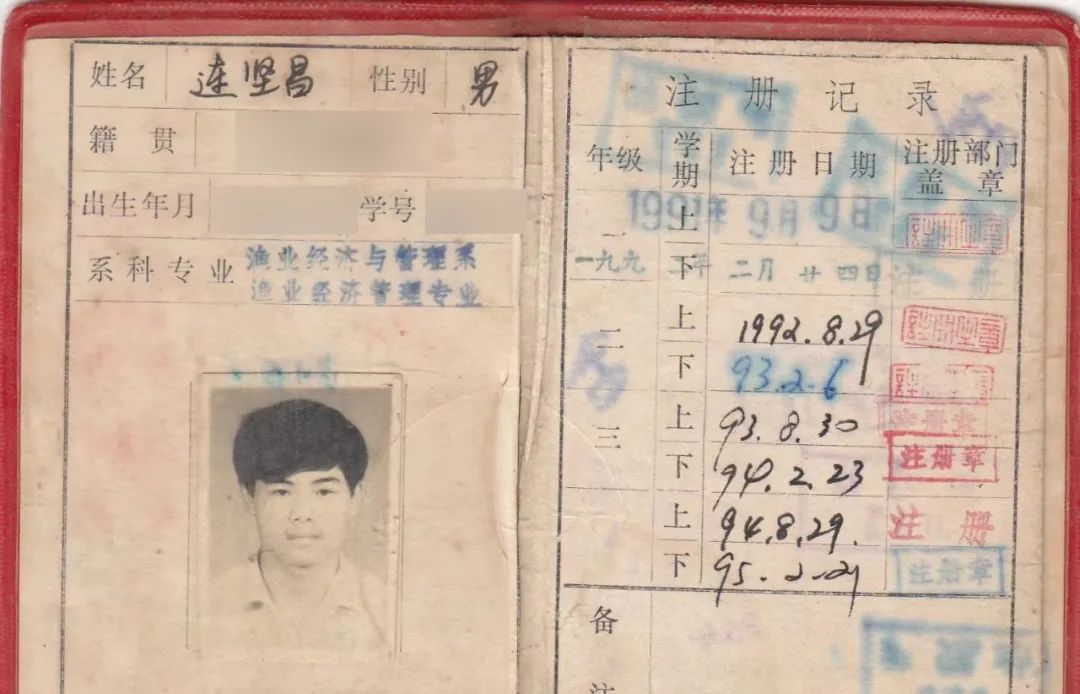 姓名 连坚昌 性别 男
籍贯
出生年月 学号
系科专业 渔业经济与管理系
渔业经济管理专业
注册记录
年级 学期 注册日期 注册部门盖章
一 上 1991年9月9日
下 一九九二年二月廿四日 注册
二 上 1992.8.29
下 93.2.6
三 上 93.8.30 注册章
下 94.2.23 注册章
上 94.8.29. 注册
下 95.2.21 注册章
备
注